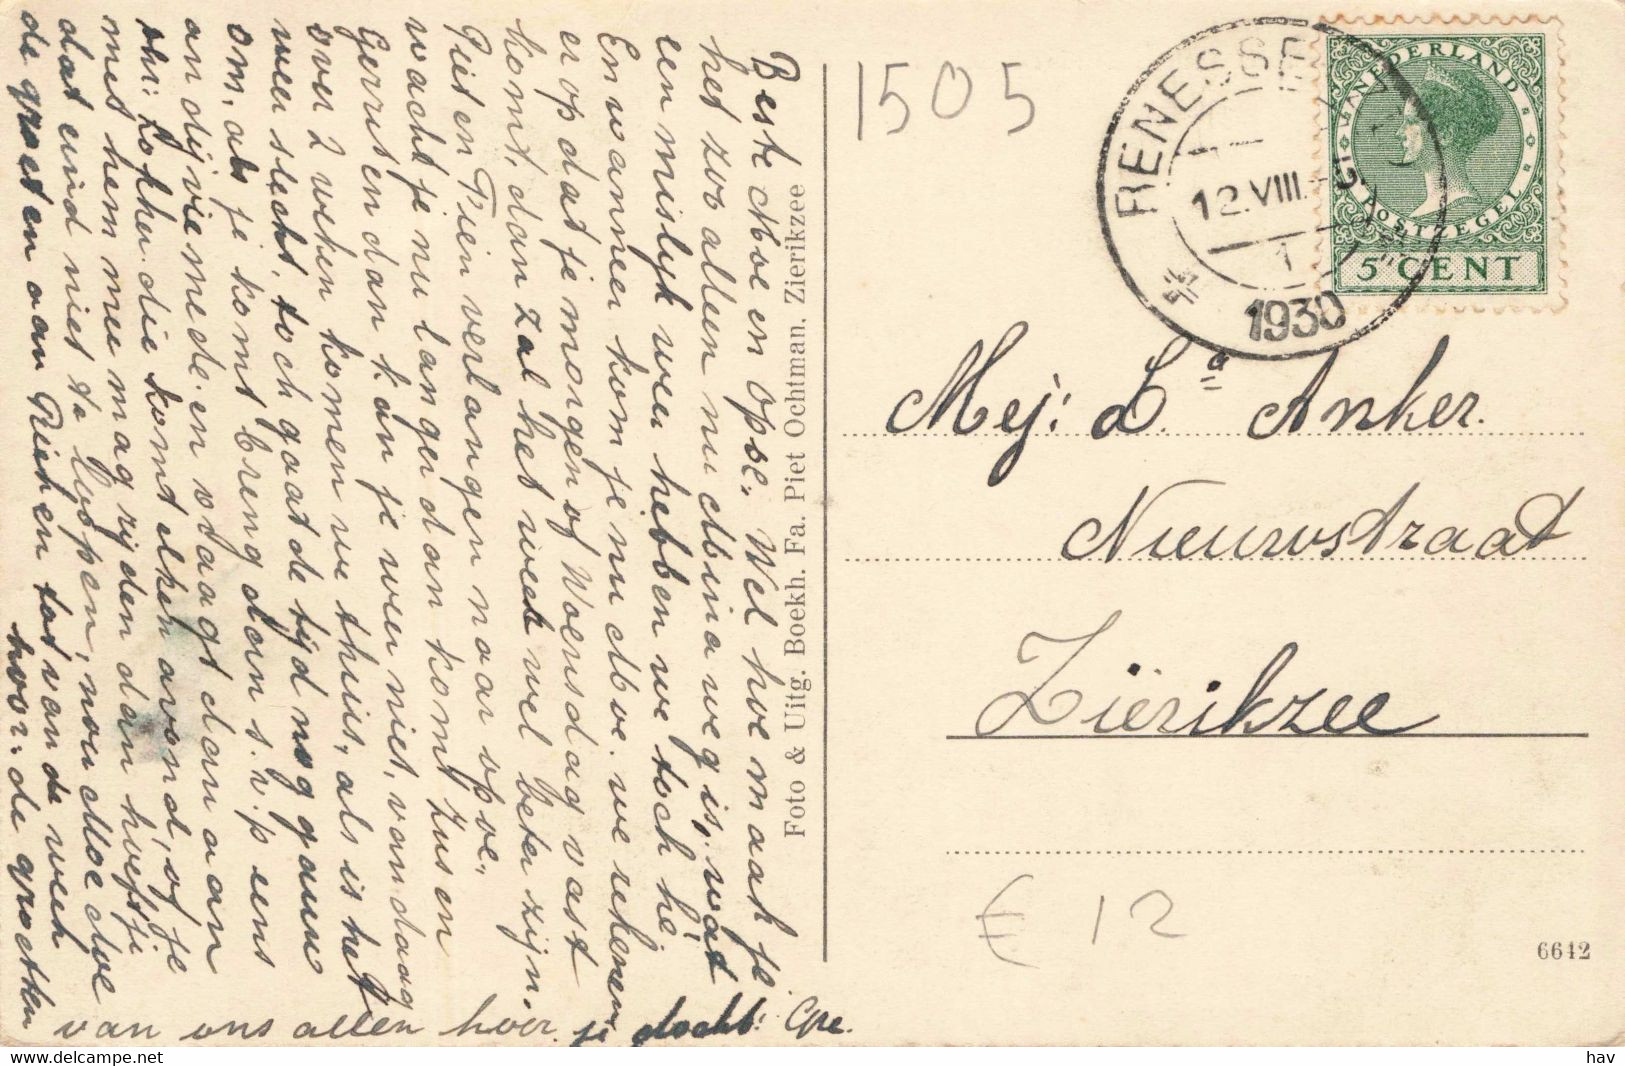 Beste Moe en Opoe. Wel hoe maak je
het zoo alleen nu dbina weg is, wat
een mislyk weer hebben we toch hé.
En wanneer kom je nu dbve. we rekenen
er op dat je morgen of Woensdag vast
komt, dan zal het weer wel beter zijn.
Piet en Pien verlangen naar opoe.
wacht je nu langer dan komt Zus en
Gerrit en dan kan je weer niet, vandaag
over 2 weken komen we thuis, als is het
weer slecht, toch gaat de tijd nog gauw
om, als je komt breng dan s.v.p eens
andijvie mede. en vraagt dan aan
die kokker. die komt elken avond, of je
met hem mee mag rijden dan hoef je
dat eind niet te loopen, nou Moe dve
de groeten aan Rieken tot van de week
hoor. de groeten
van ons allen hoor. je docht: Cpe.
Foto & Uitg. Boekh. Fa. Piet Ochtman, Zierikzee
1505
RENESSE
12.VIII.
1
1930
NEDERLAND
POSTZEGEL
5 CENT
Mej: L. Anker.
Nieuwstraat
Zierikzee
€ 12
6642
hav